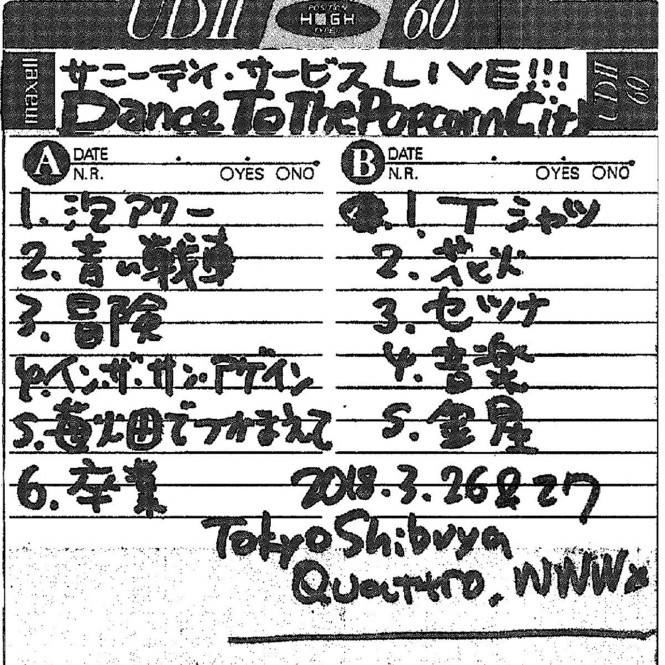 UDII POSITION HIGH TYPE 60
maxell
サニーデイ・サービス LIVE!!!
Dance To The Popcorn City
UDII 60
A DATE . . .
N.R. ○YES ○NO
1. 泡アワー
2. 青い戦車
3. 冒険
4. イン・ザ・サン・アゲイン
5. 苺畑でつかまえて
6. 卒業
B DATE . . .
N.R. ○YES ○NO
1. Tシャツ
2. 花火
3. セツナ
4. 音楽
5. 金星
2018.3.26&27
Tokyo Shibuya
Quattro, WWWx